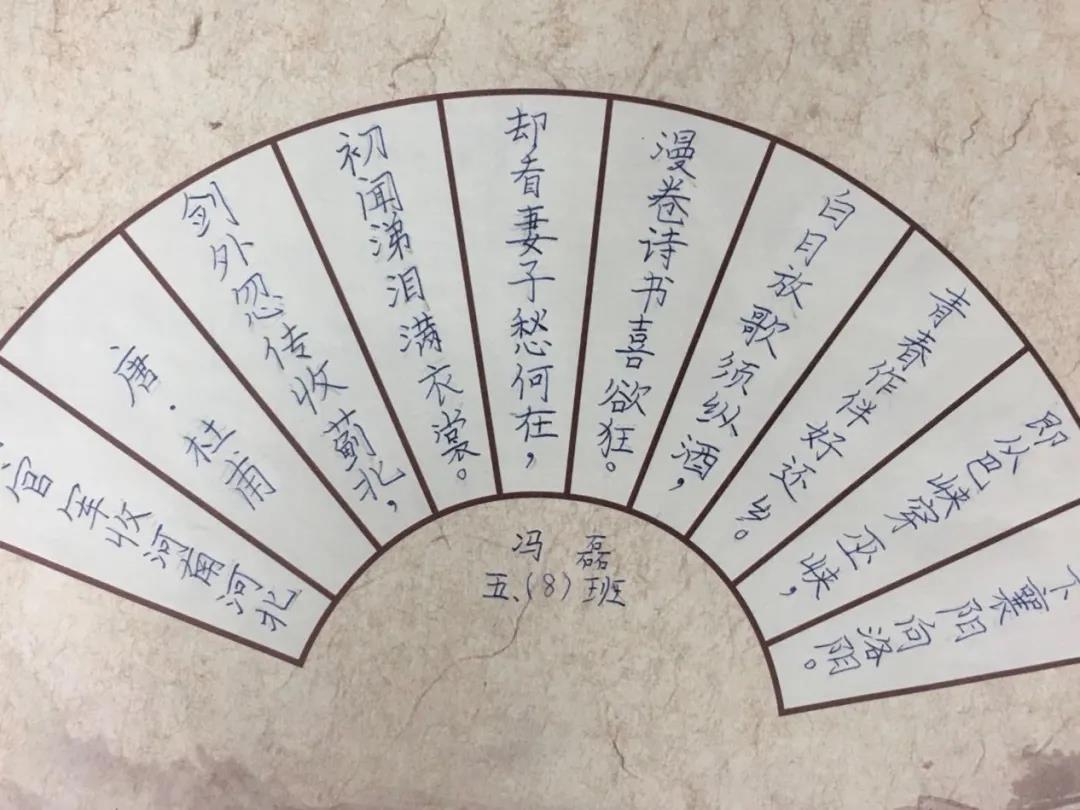 官军收河南河北
唐·杜甫
剑外忽传收蓟北，
初闻涕泪满衣裳。
却看妻子愁何在，
漫卷诗书喜欲狂。
白日放歌须纵酒，
青春作伴好还乡。
即从巴峡穿巫峡，
下襄阳向洛阳。
冯磊
五、（8）班